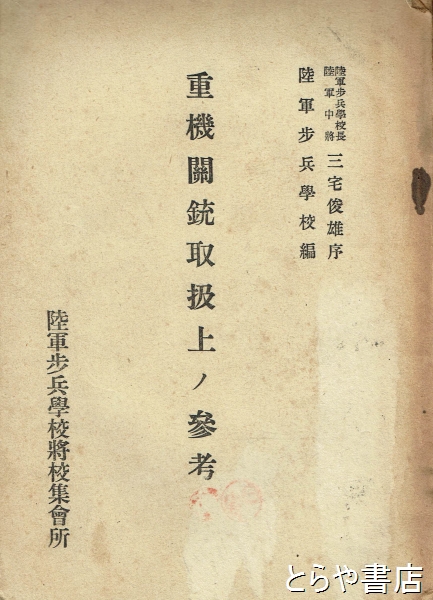 陸軍步兵學校長
陸軍中將
三宅俊雄序
陸軍步兵學校編
重機關銃取扱上ノ參考
陸軍步兵學校將校集會所
とらや書店